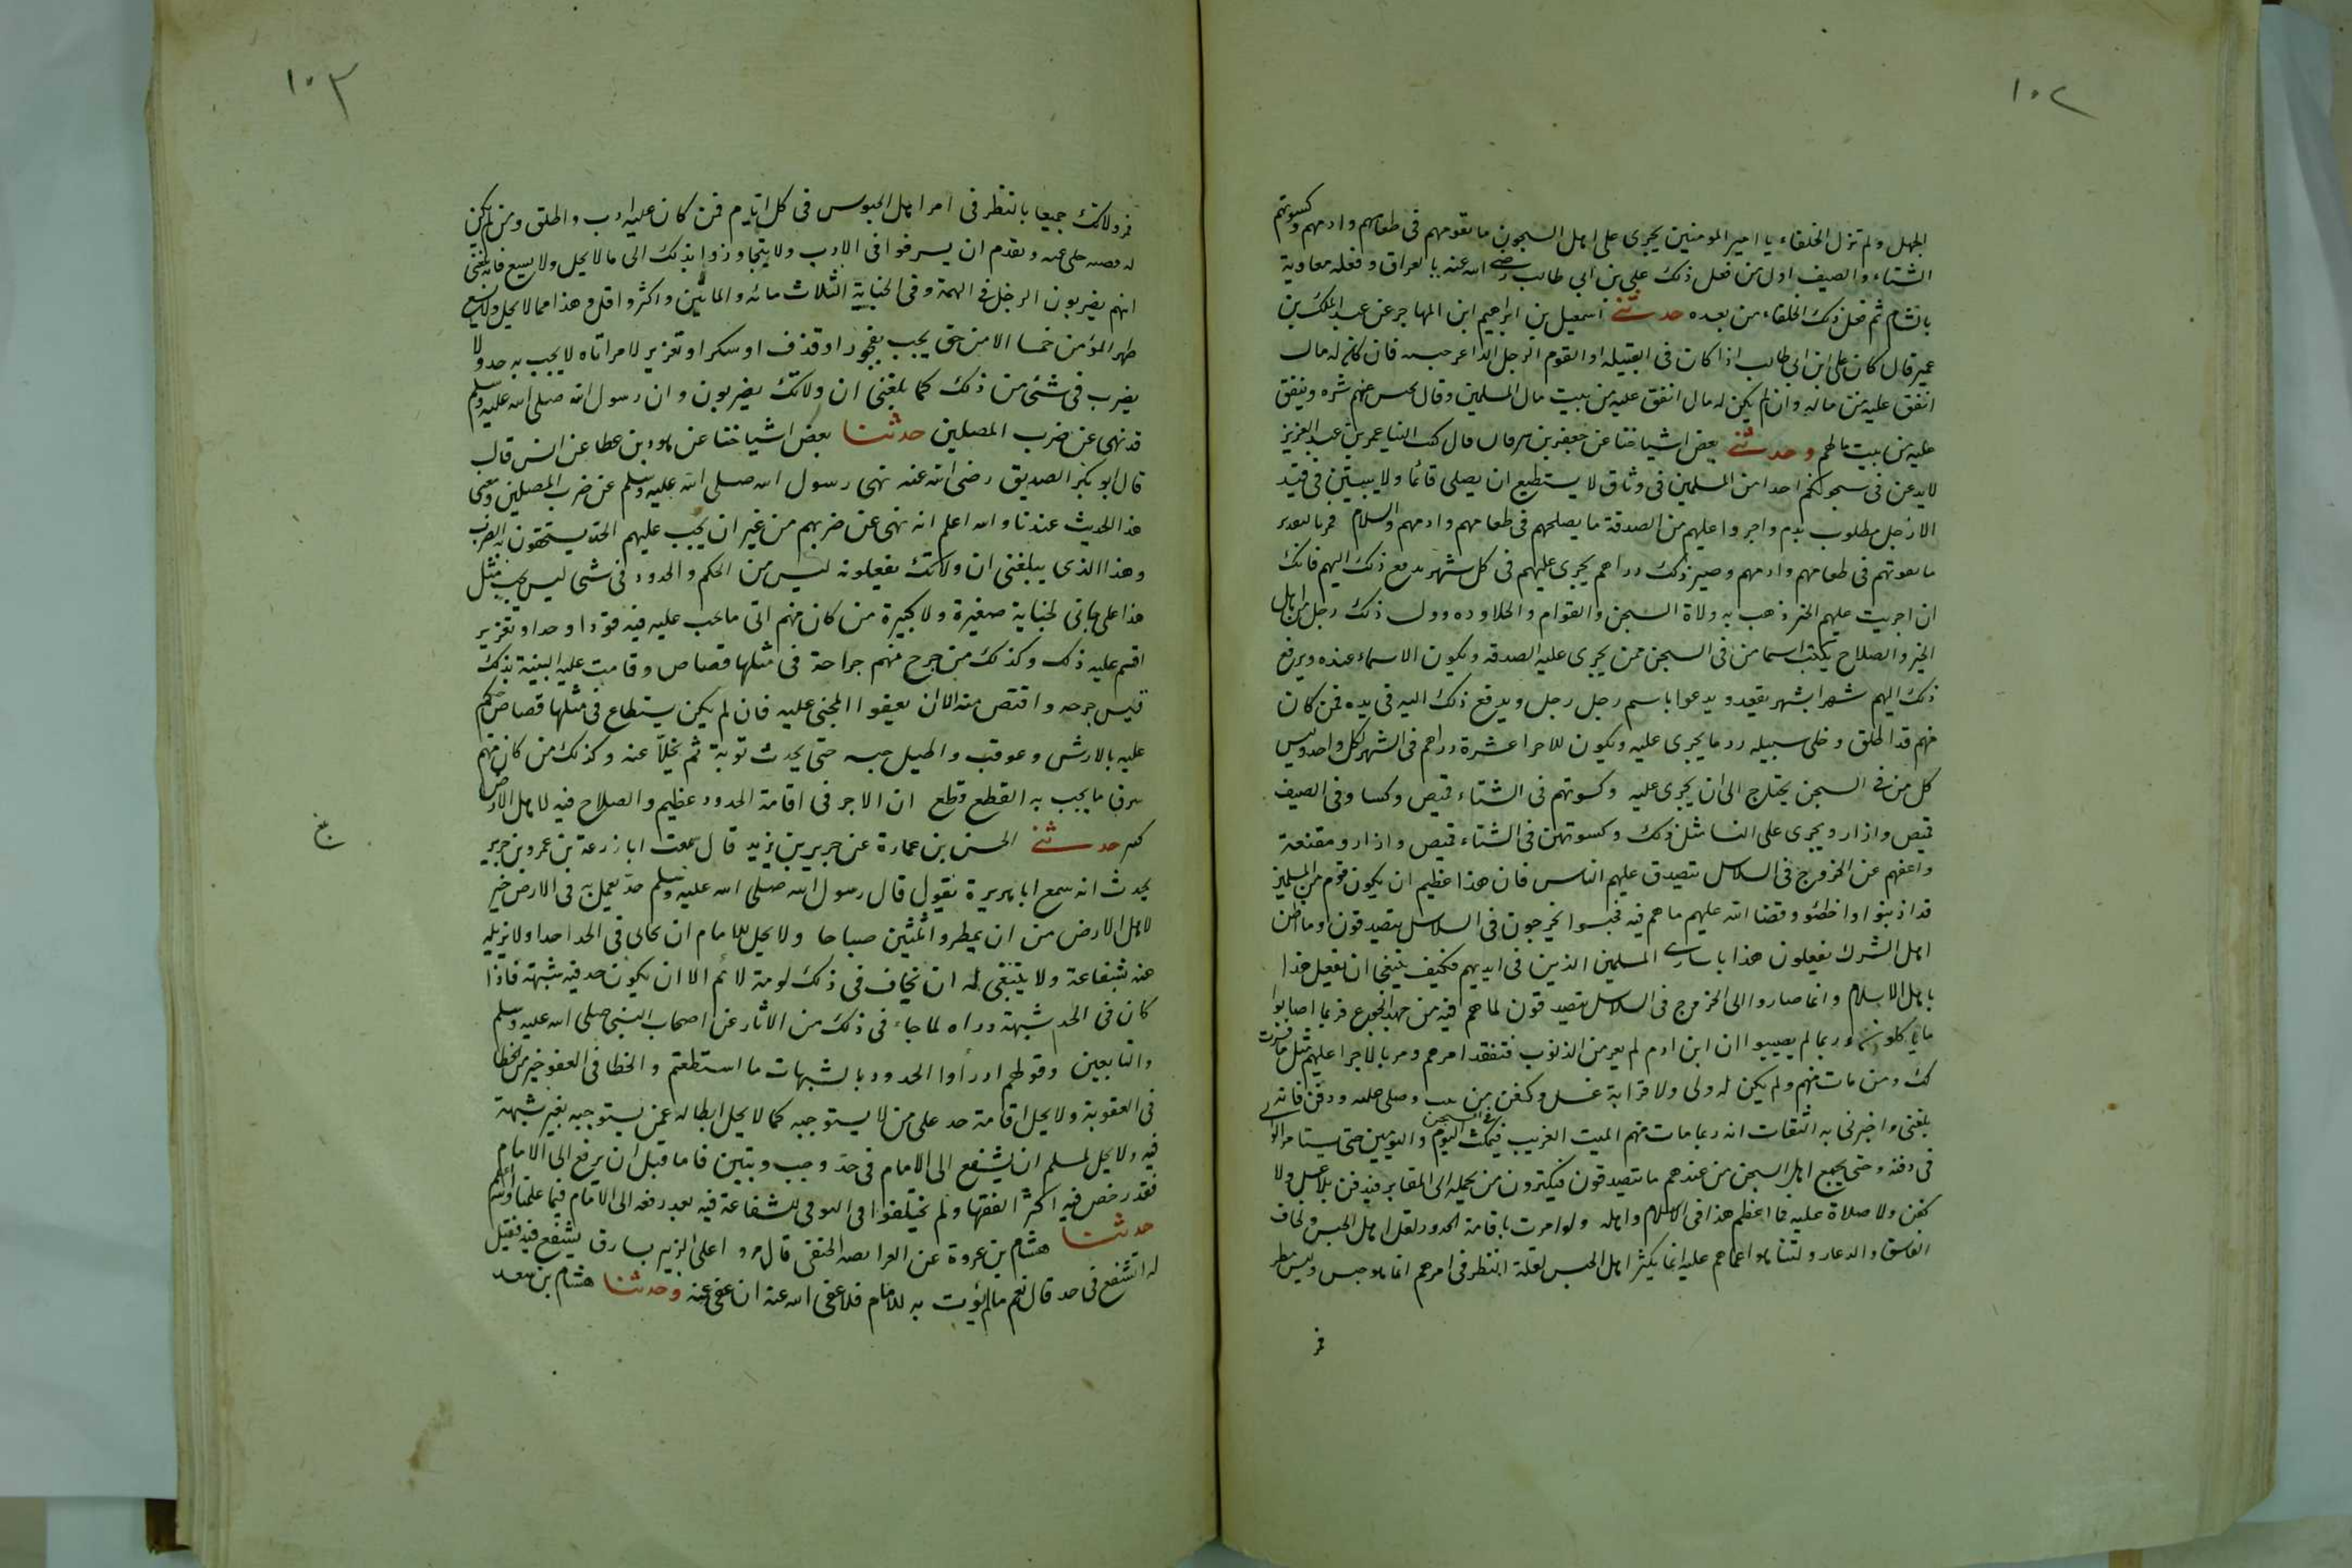 ١٠٢
الجهل ولم تزل الخلفاء يا امير المومنين يجرى على اهل السجون ما يقوتهم فى طعامهم وادمهم وكسوتهم
الشتاء والصيف اول من فعل ذلك على بن ابى طالب رضى الله عنه بالعراق وفعله معاوية
بالشام ثم فعل ذلك الخلفاء من بعده حدثنى اسمعيل بن ابراهيم ابن المهاجر عن عبد الملك بن
عمير قال كان على ابن ابى طالب اذا كان فى القبيله او القوم الرجل الداعر حبسه فان كان له مال
انفق عليه من ماله وان لم يكن له مال انفق عليه من بيت مال المسلمين وقال يحبس عنهم شره وينفق
عليه من بيت مالهم وحدثنى بعض اشياخنا عن جعفر بن برقان قال كتب الينا عمر بن عبد العزيز
لا يدعن فى سجونكم احدا من المسلمين فى وثاق لا يستطيع ان يصلى قائما ولا يبيتن فى قيد
الا رجل مطلوب بدم واجروا عليهم من الصدقة ما يصلحهم فى طعامهم وادمهم والسلام فمر بالتقدير
ما يقوتهم فى طعامهم وادمهم وصير ذلك دراهم يجرى عليهم فى كل شهر يدفع ذلك اليهم فانك
ان اجريت عليهم الخبز ذهب به ولاة السجن والقوام والجلاوده وول ذلك رجل من اهل
الخير والصلاح يكتب اسما من فى السجن ممن يجرى عليه الصدقه ويكون الاسماء عنده ويرفع
ذلك اليهم شهرا بشهر يقعد ويدعوا باسم رجل رجل ويدفع ذلك اليه فى يده فمن كان
منهم قد اطلق وخلى سبيله رد ما يجرى عليه ويكون للاجرا عشرة دراهم فى الشهر لكل واحد وليس
كل من فى السجن يحتاج الى ان يجرى عليه وكسوتهم فى الشتاء قميص وكسا وفى الصيف
قميص وازار ويجرى على النسا مثل ذلك وكسوتهن فى الشتاء قميص وازار ومقنعة
واغنهم عن الخروج فى السلاسل يتصدق عليهم الناس فان هذا عظيم ان يكون قوم من المسلمين
قد اذنبوا واخطئوا وقضا الله عليهم ما هم فيه فحبسوا يخرجون فى السلاسل يتصدقون وما اظن
اهل الشرك يفعلون هذا باسارى المسلمين الذين فى ايديهم فكيف ينبغى ان يفعل هذا
باهل الاسلام وانما صاروا الى الخروج فى السلاسل يتصدقون لما هم فيه من جهد الجوع فربما اصابوا
ما ياكلون وربما لم يصيبوا ان ابن ادم لم يعر من الذنوب فتفقد امرهم ومر بالاجرا عليهم مثل ما فسرت
لك ومن مات منهم ولم يكن له ولى ولا قرابة غسل وكفن من بيت وصلى عليه ودفن فانه
بلغنى واخبرنى به الثقات انه ربما مات منهم الميت الغريب فيمكث فى السجن اليوم واليومين حتى يستامر الوالى
فى دفنه وحتى يجمع اهل السجن من عندهم ما يتصدقون فيكترون من يحمله الى المقابر فيدفن بلا غسل ولا
كفن ولا صلاة عليه فما اعظم هذا فى الاسلام واهله ولو امرت باقامة الحدود لقل اهل الحبس ولخاف
الفاسق والدعار ولتناهوا عما هم عليه انما يكثر اهل الحبس لقلة النظر فى امرهم انما هو حبس وليس نظر
فمر
١٠٣
فمر ولاتك جميعا بالنظر فى امر اهل الحبوس فى كل ايام فمن كان عليه ادب واطلق ومن لم يكن
له قضيه خلى عنه وتقدم ان يسرفوا فى الادب ولا يتجاوزوا بذلك الى ما لا يحل ولا يسع فانه بلغنى
انهم يضربون الرجل فى التهمة وفى الجناية الثلاث مائه والمائين واكثر واقل وهذا مما لا يحل ولا يسع
ظهر المؤمن حمى الا من حق يجب بفجور او قذف او سكر او تعزير لامر اتاه لا يجب به حد ولا
يضرب فى شئ من ذلك كما بلغنى ان ولاتك يضربون وان رسول الله صلى الله عليه وسلم
قد نهى عن ضرب المصلين حدثنا بعض اشياخنا عن هود بن عطا عن انس قال
قال ابو بكر الصديق رضى الله عنه نهى رسول الله صلى الله عليه وسلم عن ضرب المصلين ومعنى
هذا الحديث عندنا والله اعلم انه نهى عن ضربهم من غير ان يجب عليهم الحد يستحقون به الضرب
وهذا الذى يبلغنى ان ولاتك يفعلونه ليس من الحكم والحدود فى شى ليس يجب مثل
هذا على جانى لجناية صغيرة ولا كبيرة من كان منهم اتى ما يجب عليه فيه قودا او حدا او تعزير
اقيم عليه ذلك وكذلك من جرح منهم جراحة فى مثلها قصاص وقامت عليه البينة بذلك
قيس جرحه واقتص منه الا ان يعفوا المجنى عليه فان لم يكن يستطاع فى مثلها قصاص حكم
عليه بالارش وعوقب واطيل حبسه حتى يحدث توبة ثم يخلا عنه وكذلك من كان منهم
سرق ما يجب به القطع قطع ان الاجر فى اقامة الحدود عظيم والصلاح فيه لاهل الارض
كثير حدثنى الحسن بن عمارة عن جرير بن يزيد قال سمعت ابا زرعة بن عمرو بن جرير
يحدث انه سمع ابا هريرة يقول قال رسول الله صلى الله عليه وسلم حد يعمل به فى الارض خير
لاهل الارض من ان يمطروا ثلثين صباحا ولا يحل للامام ان يحابى فى الحد احدا ولا يزيله
عنه شفاعة ولا ينبغى له ان يخاف فى ذلك لومة لائم الا ان يكون حد فيه شبهة فاذا
كان فى الحد شبهة دراه لما جاء فى ذلك من الاثار عن اصحاب النبى صلى الله عليه وسلم
والتابعين وقولهم ادرأوا الحدود بالشبهات ما استطعتم والخطا فى العفو خير من الخطا
فى العقوبة ولا يحل اقامة حد على من لا يستوجبه كما لا يحل ابطاله عمن يستوجبه بغير شبهة
فيه ولا يحل لمسلم ان يشفع الى الامام فى حد وجب وتبين فاما قبل ان يرفع الى الامام
فقد رخص فيه اكثر الفقها ولم يختلفوا فى التوقى للشفاعة فيه بعد رفعه الى الامام فيما علمنا والله اعلم
حدثنا هشام بن عروة عن الفرافصه الحنفى قال مروا على الزبير بسارق يشفع فيه فقيل
له اتشفع فى حد قال نعم ما لم يؤت به للامام فلا عفى الله عنه ان عفى عنه وحدثنا هشام بن سعد